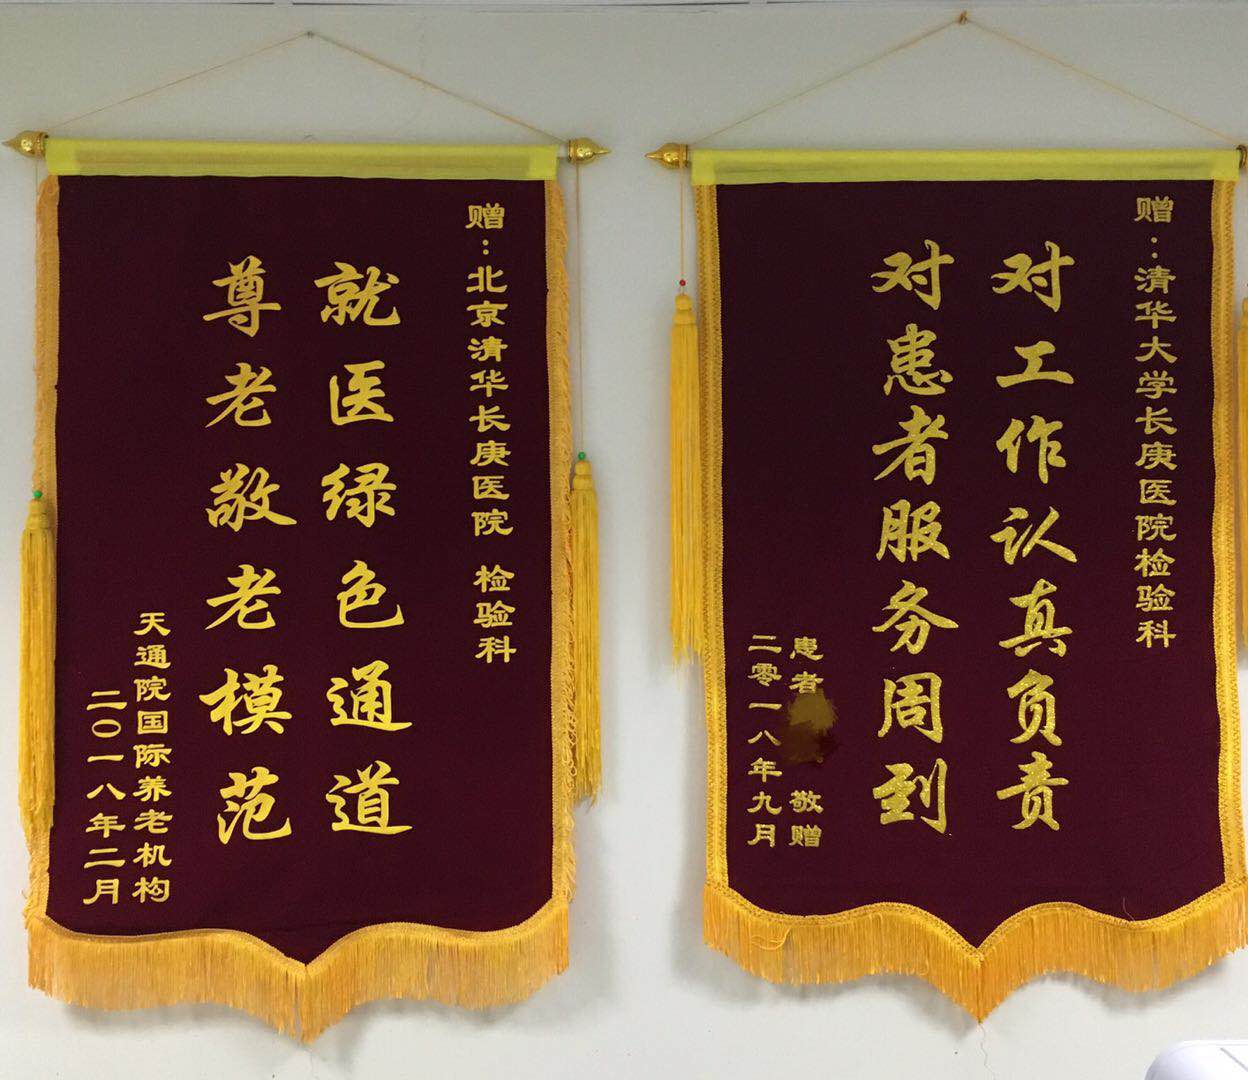 赠：北京清华长庚医院 检验科
就医绿色通道
尊老敬老模范
天通院国际养老机构
二〇一八年二月
赠：清华大学长庚医院检验科
对工作认真负责
对患者服务周到
患者 敬赠
二零一八年九月